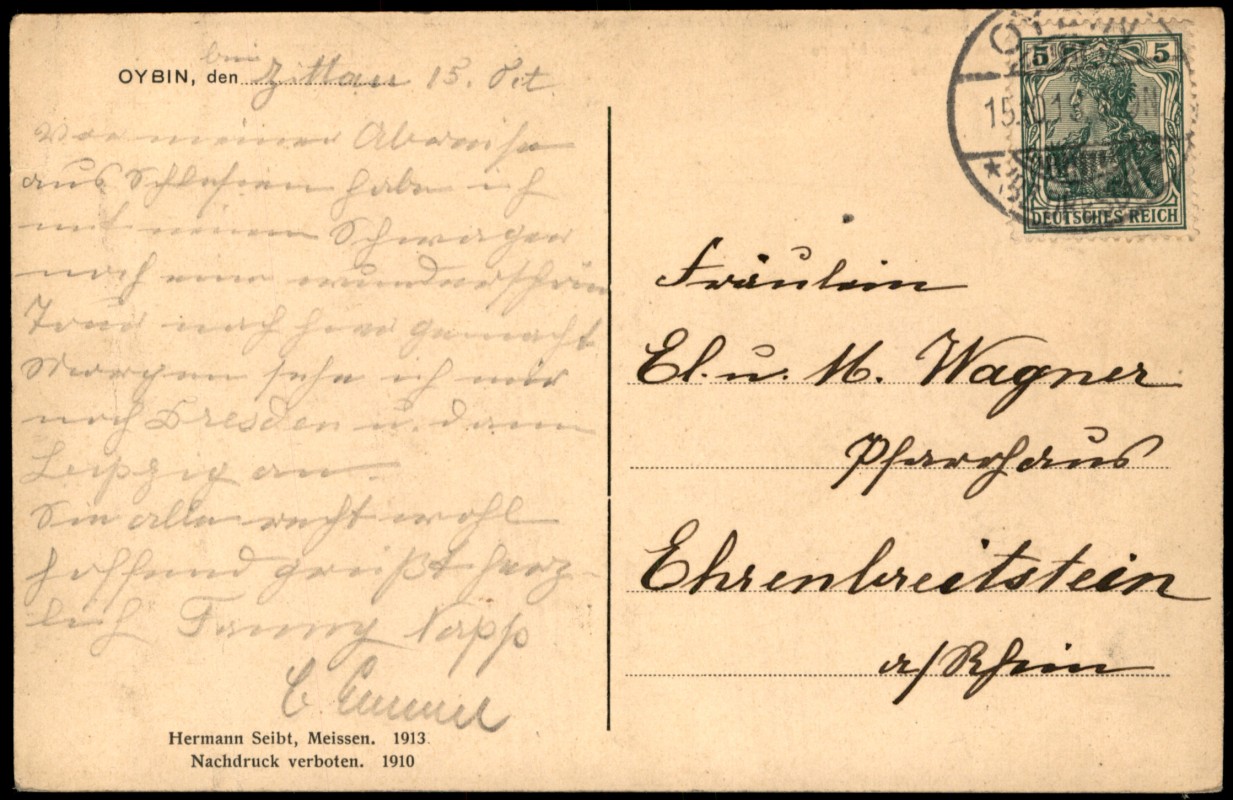 OYBIN, den
15. Oct
Vor meiner Abreise
aus Schlesien habe ich
mit meinem Schwager
noch eine wunderschöne
Tour nach hier gemacht
Morgen sehe ich mir
noch Dresden u. dann
Leipzig an.
Sie alle recht wohl
hoffend grüßt herz-
lich Fanny
Hermann Seibt, Meissen. 1913
Nachdruck verboten. 1910
OYBIN
15.10.1
5 5
DEUTSCHES REICH
Fräulein
El. u. M. Wagner
Pfarrhaus
Ehrenbreitstein
a/Rhein